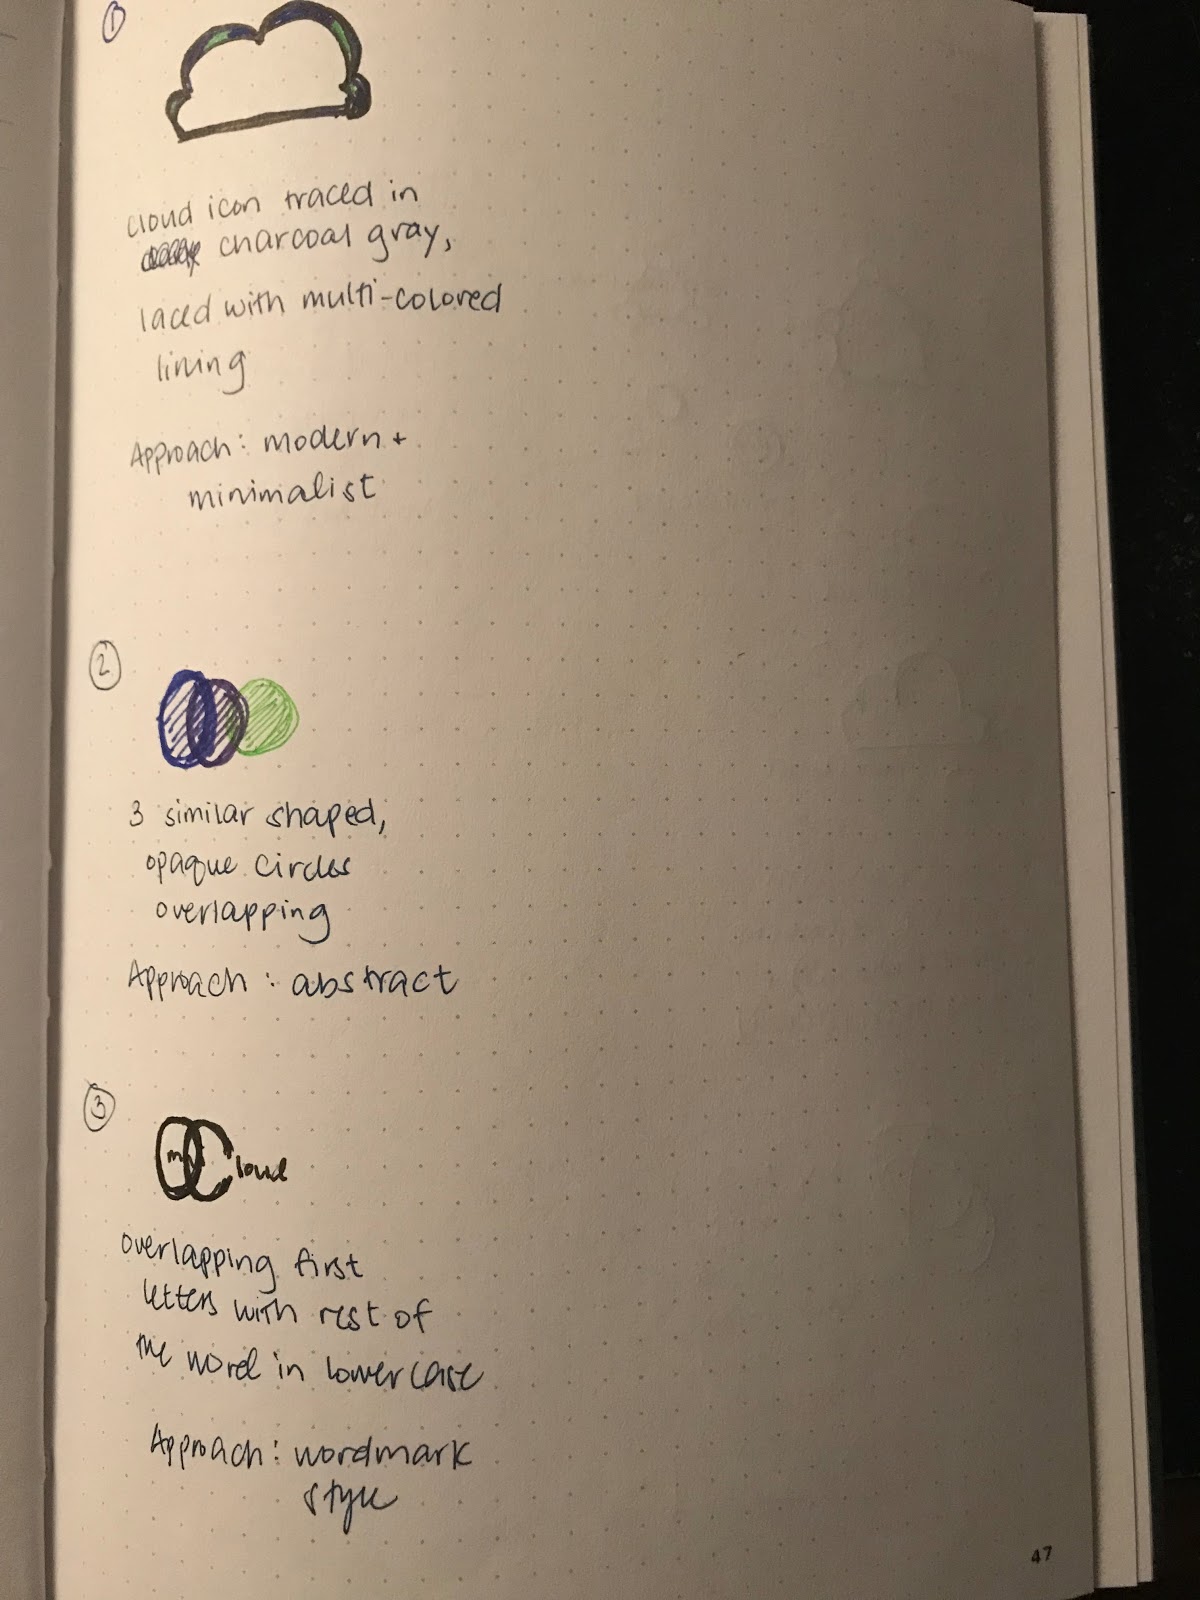 1
cloud icon traced in
charcoal gray,
laced with multi-colored
lining
Approach: modern +
minimalist
2
3 similar shaped,
opaque circles
overlapping
Approach: abstract
3
my Cloud
overlapping first
letters with rest of
the word in lowercase
Approach: wordmark
style
47